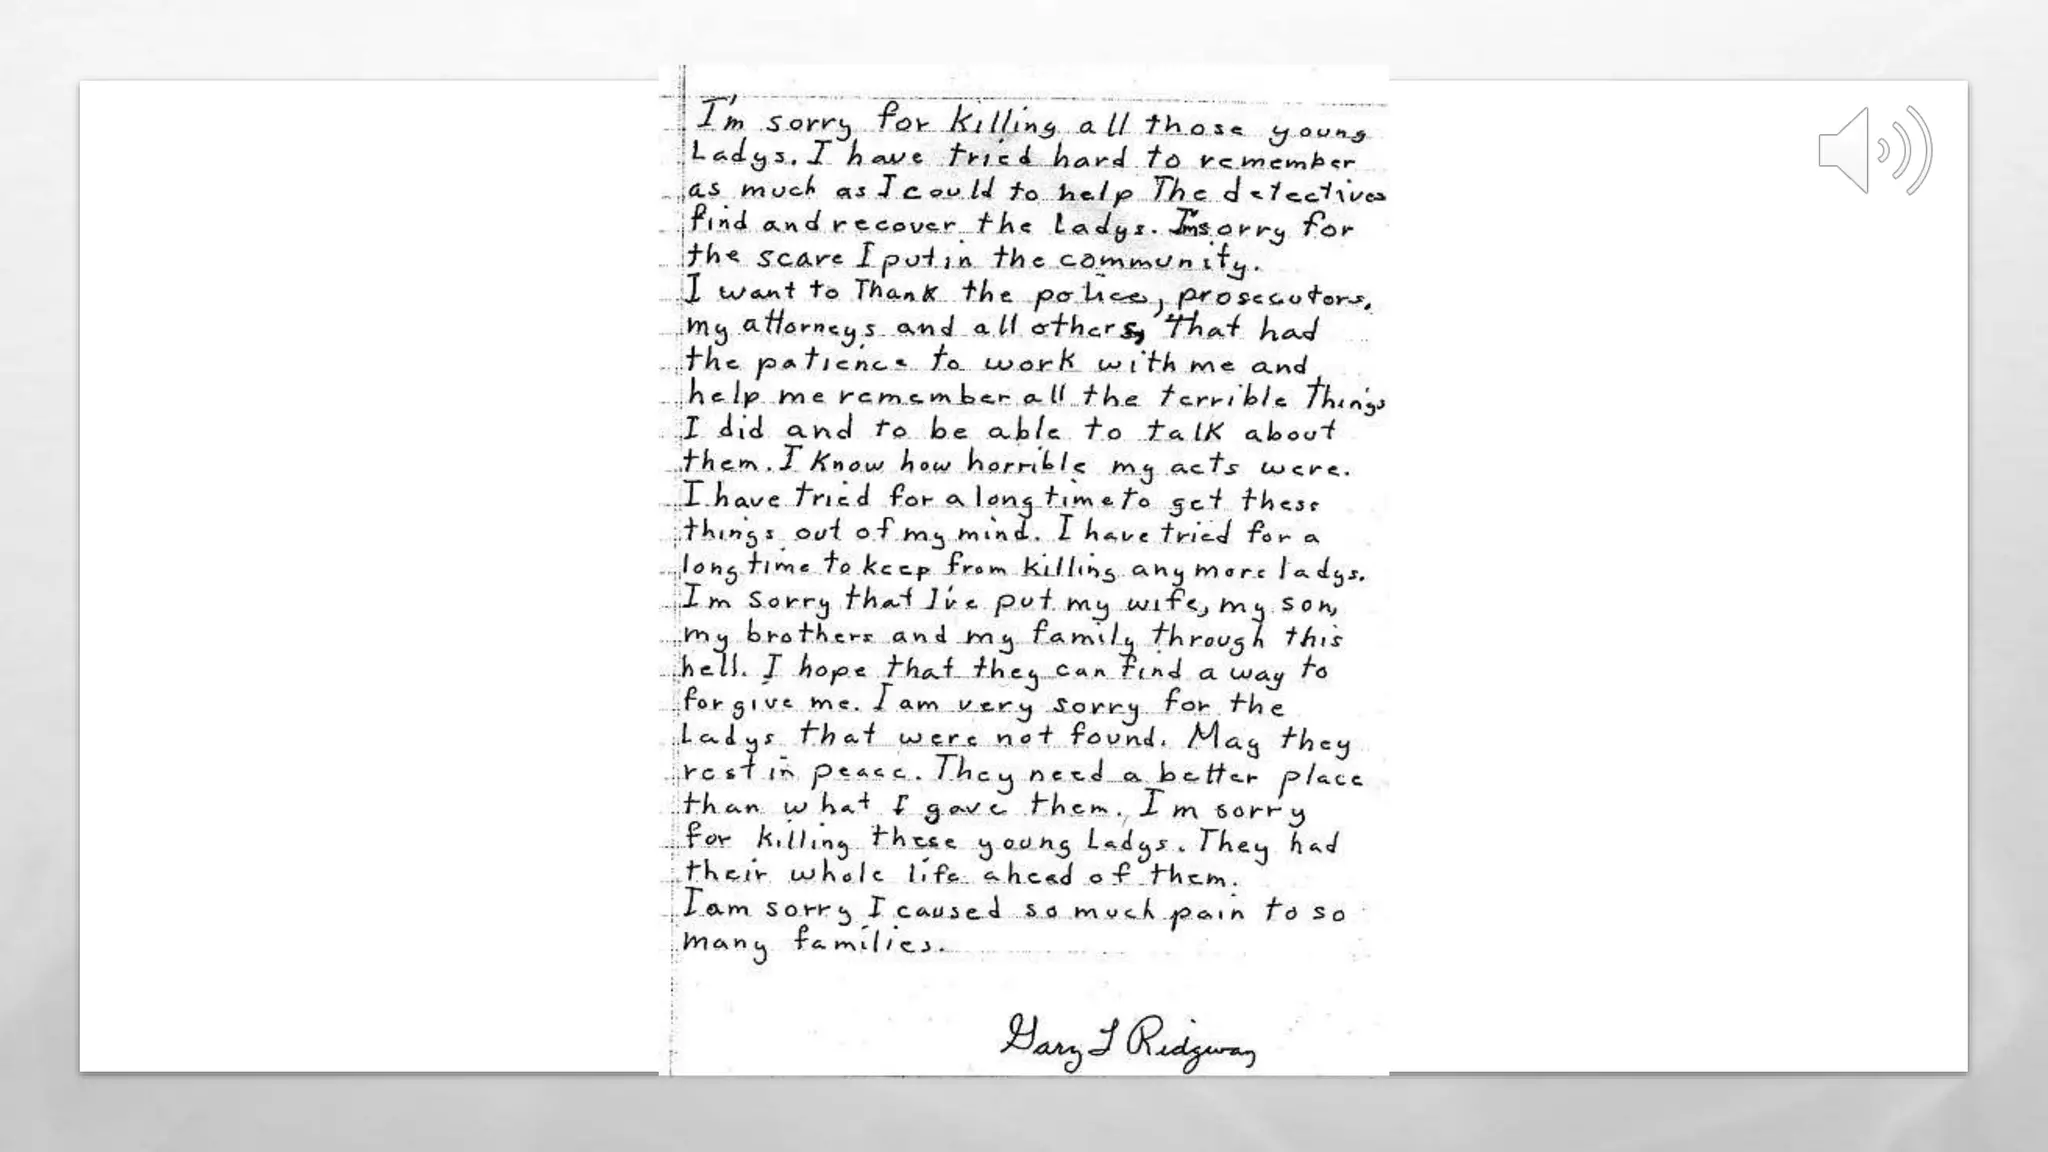 I'm sorry for killing all those young
Ladys. I have tried hard to remember
as much as I could to help The detectives
find and recover the ladys. I'm sorry for
the scare I put in the community.
I want to Thank the police, prosecutors,
my attorneys and all others, That had
the patience to work with me and
help me remember all the terrible Things
I did and to be able to talk about
them. I Know how horrible my acts were.
I have tried for a long time to get these
things out of my mind. I have tried for a
long time to keep from killing any more ladys.
I'm sorry that I've put my wife, my son,
my brothers and my family through this
hell. I hope that they can find a way to
forgive me. I am very sorry for the
Ladys that were not found. May they
rest in peace. They need a better place
than what I gave them. I'm sorry
for killing these young Ladys. They had
their whole life ahead of them.
I am sorry I caused so much pain to so
many families.
Gary L Ridgway